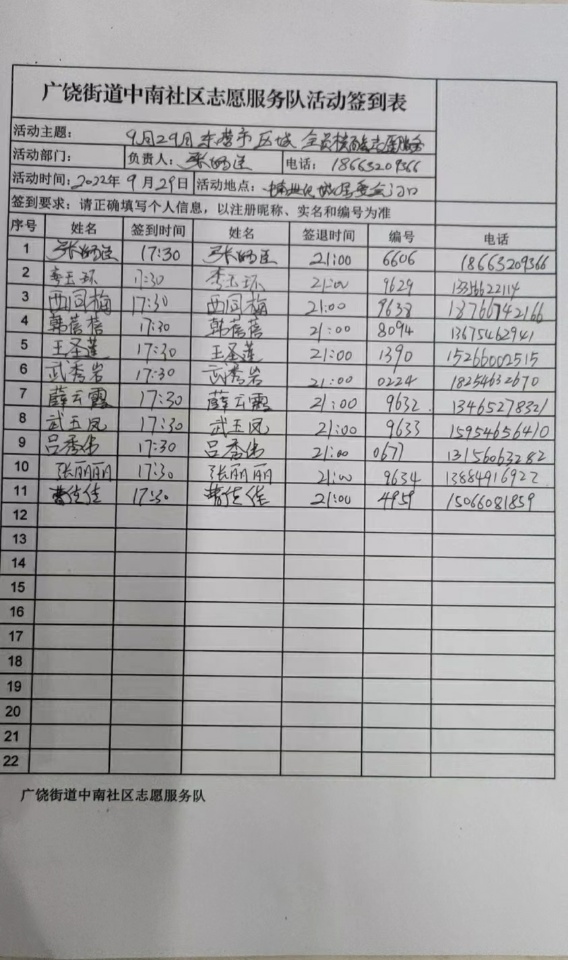 广饶街道中南社区志愿服务队活动签到表
活动主题: 9月29月东营市区域全员核酸志愿服务
活动部门: 负责人: 张 电话: 18663209366
活动时间: 2022年9月29日 活动地点: 居委会门口
签到要求: 请正确填写个人信息，以注册昵称、实名和编号为准
序号 姓名 签到时间 姓名 签退时间 编号 电话
1 张 17:30 张 21:00 6606 18663209366
2 李玉环 17:30 李玉环 21:00 9629
3 西同梅 17:30 西同梅 21:00 9638 18766742166
4 韩蓓蓓 17:30 韩蓓蓓 21:00 8094 13675462941
5 王圣莲 17:30 王圣莲 21:00 1390 15266002515
6 武秀岩 17:30 武秀岩 21:00 0224 18254632670
7 薛云霞 17:30 薛云霞 21:00 9632 13465278321
8 武玉凤 17:30 武玉凤 21:00 9633 15954656410
9 吕秀伟 17:30 吕秀伟 21:00 0671 13156063282
10 张丽丽 17:30 张丽丽 21:00 9634 13884916922
11 佳佳 17:30 曹佳佳 21:00 4959 15066081859
12
13
14
15
16
17
18
19
20
21
22
广饶街道中南社区志愿服务队